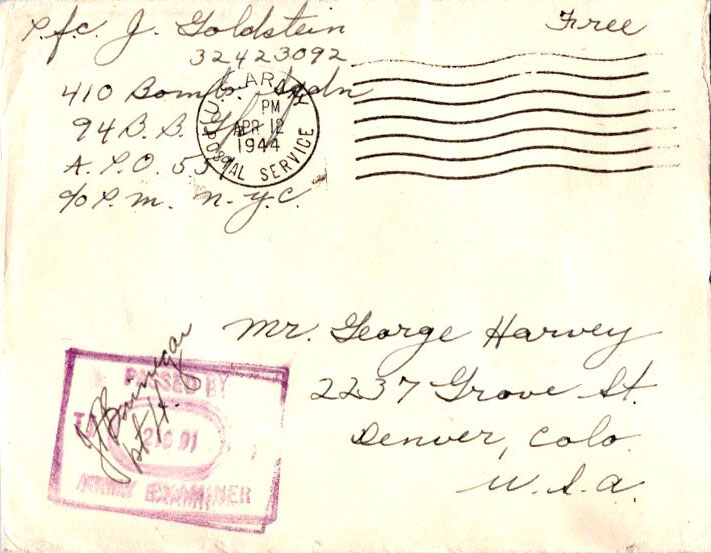 P.f.c. J. Goldstein
Free
32423092
410 Bomb. Sqdn
94 B. B. Gp
A.P.O. 557
c/o P.M. N.Y.C.
U.S. ARMY
PM
APR 12
1944
POSTAL SERVICE
Mr. George Harvey
2237 Grove St.
Denver, Colo.
U.S.A.
PASSED BY
ARMY EXAMINER